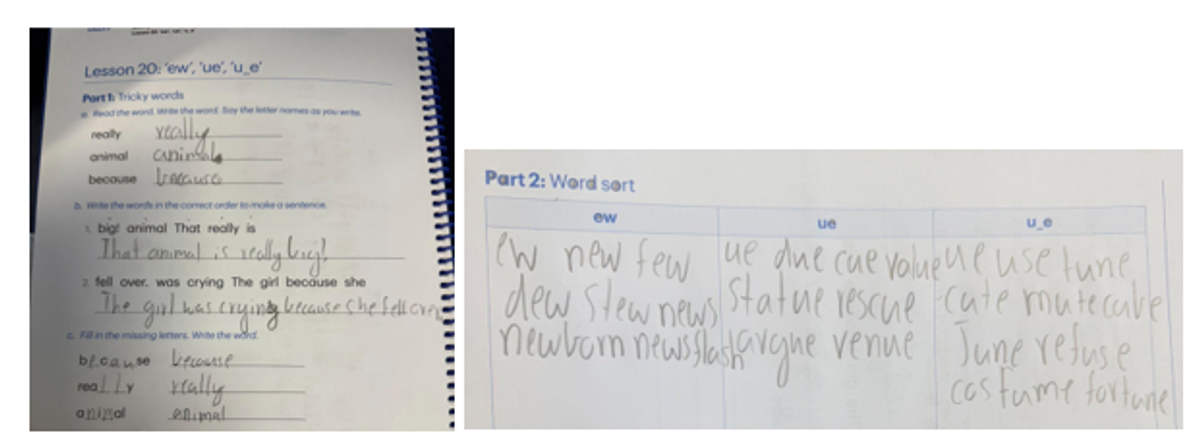 Lesson 20: 'ew', 'ue', 'u_e'
Part 1: Tricky words
a. Read the word. Write the word. Say the letter names as you write.
really really
animal animal
because because
b. Write the words in the correct order to make a sentence.
1. big! animal That really is
That animal is really big!
2. fell over. was crying The girl because she
The girl was crying because she fell over
c. Fill in the missing letters. Write the word.
because because
really really
animal animal
Part 2: Word sort
ew ue u_e
ew new few ue due cue value ue use tune
dew stew news statue rescue cute mute cube
newborn newsflash argue venue June refuse
costume fortune